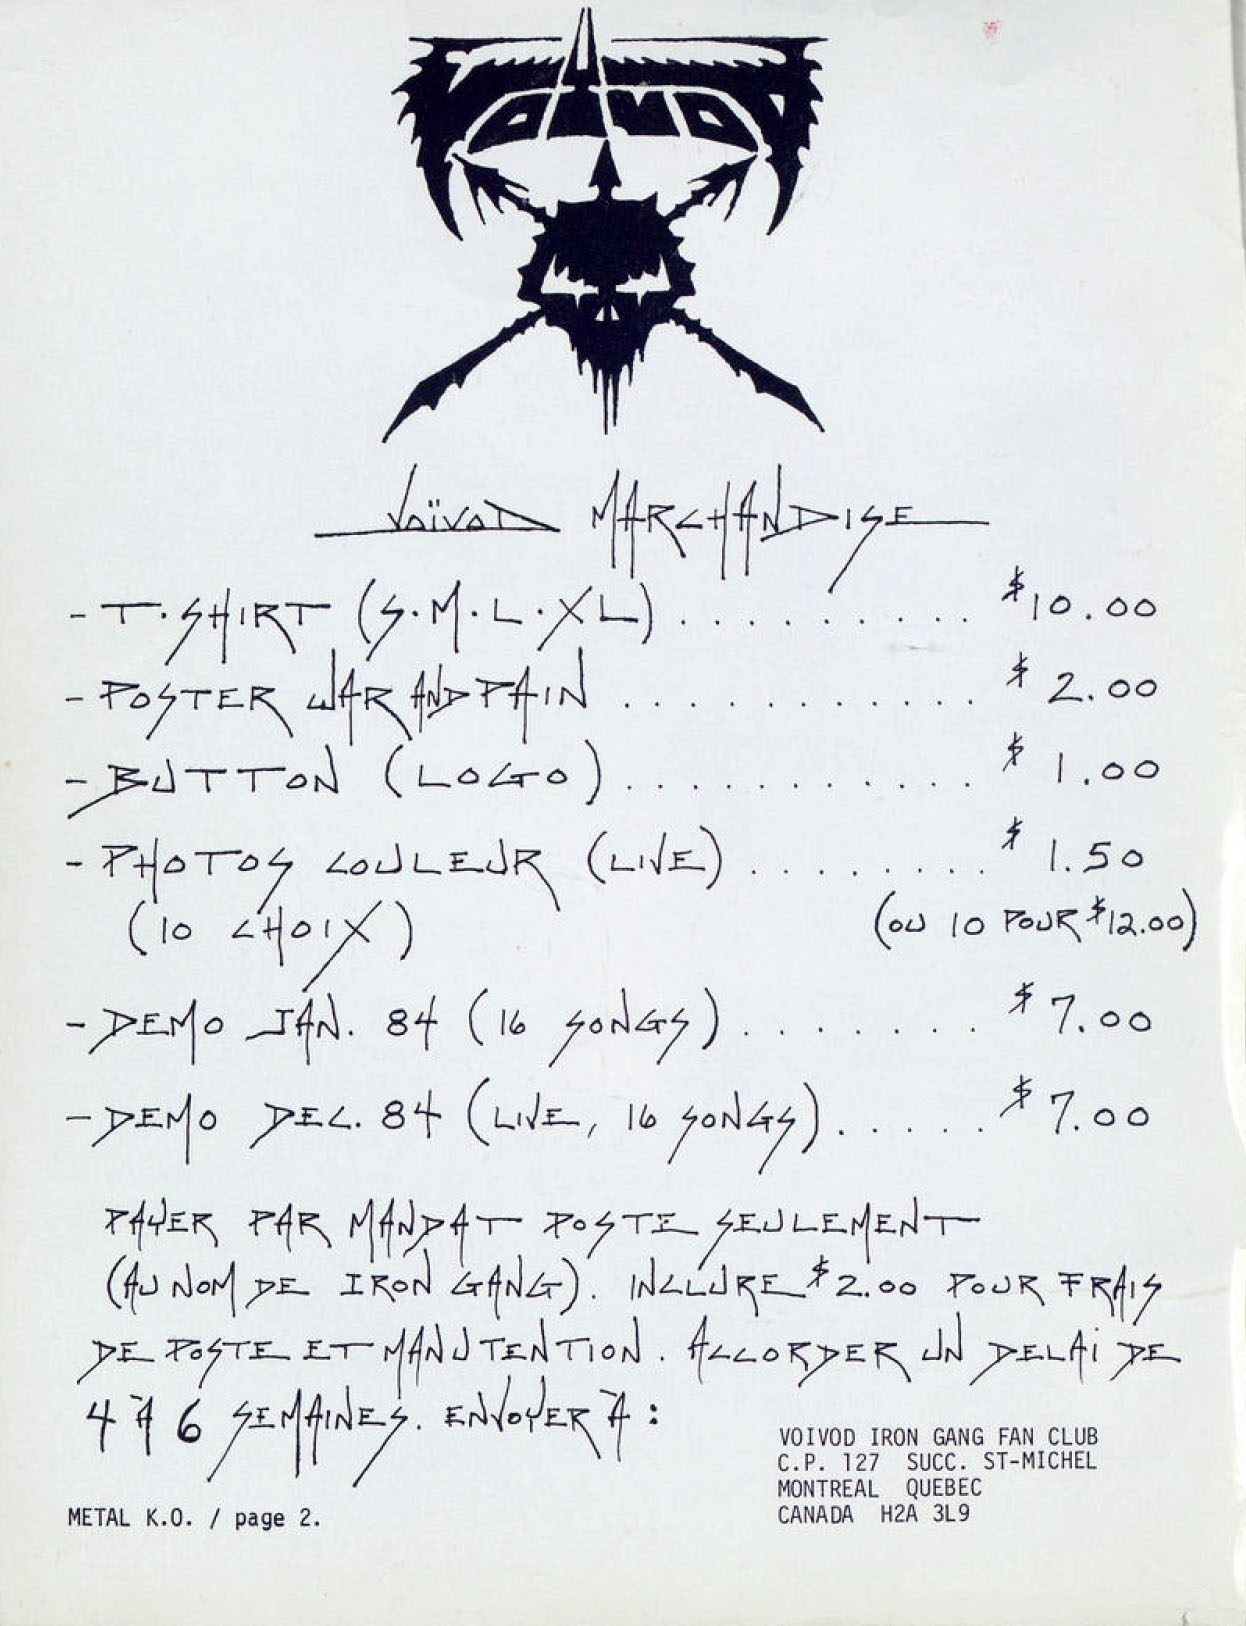 VOIVOD
VOÏVOD MARCHANDISE
- T.SHIRT (S.M.L.XL) .......... $10.00
- POSTER WAR AND PAIN ............ $2.00
- BUTTON (LOGO) ........... $1.00
- PHOTOS COULEUR (LIVE) ........ $1.50
(10 CHOIX) (OU 10 POUR $12.00)
- DEMO JAN. 84 (16 SONGS) ........ $7.00
- DEMO DEC. 84 (LIVE, 16 SONGS) ..... $7.00
PAYER PAR MANDAT POSTE SEULEMENT
(AU NOM DE IRON GANG). INCLURE $2.00 POUR FRAIS
DE POSTE ET MANUTENTION. ACCORDER UN DELAI DE
4 À 6 SEMAINES. ENVOYER À :
VOIVOD IRON GANG FAN CLUB
C.P. 127 SUCC. ST-MICHEL
MONTREAL QUEBEC
CANADA H2A 3L9
METAL K.O. / page 2.